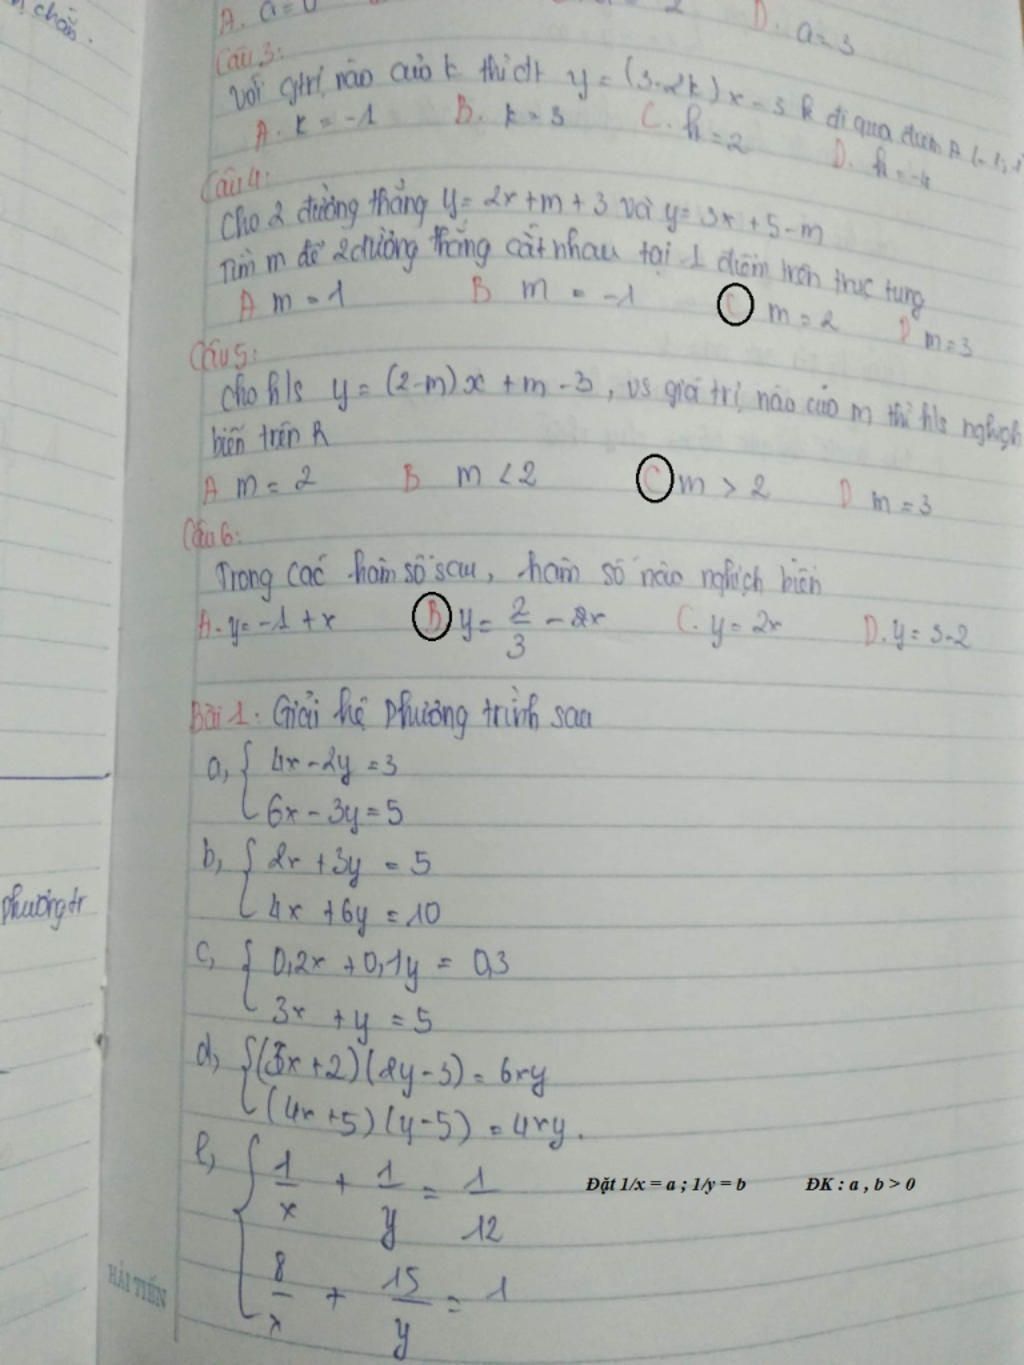 chẵn.
A. a=0
2
D. a=3
Câu 3:
Với gtrị nào của k thì dt y = (3-2k)x - 3k đi qua điểm A (-1;1
A. k = -1 B. k = 3 C. k = 2 D. k = -4
Câu 4:
Cho 2 đường thẳng y = 2x + m + 3 và y = 3x + 5 - m
Tìm m để 2 đường thẳng cắt nhau tại 1 điểm trên trục tung
A m = 1 B m = -1 C m = 2 D m = 3
Câu 5:
Cho h/s y = (2-m)x + m - 3, vs giá trị nào của m thì h/s nghịch
biến trên R
A m = 2 B m < 2 C m > 2 D m = 3
Câu 6:
Trong các hàm số sau, hàm số nào nghịch biến
A. y = -1 + x B y = 2/3 - 2x C. y = 2x D. y = 3-2
Bài 1: Giải hệ phương trình sau
a, { 4x - 2y = 3
6x - 3y = 5
b, { 2x + 3y = 5
4x + 6y = 10
c, { 0,2x + 0,1y = 0,3
3x + y = 5
d, { (3x+2)(2y-3) = 6xy
(4x+5)(y-5) = 4xy.
e, { 1/x + 1/y = 1/12 Đặt 1/x = a ; 1/y = b ĐK : a , b > 0
8/x + 15/y = 1
phương tr
HẢI TIẾN